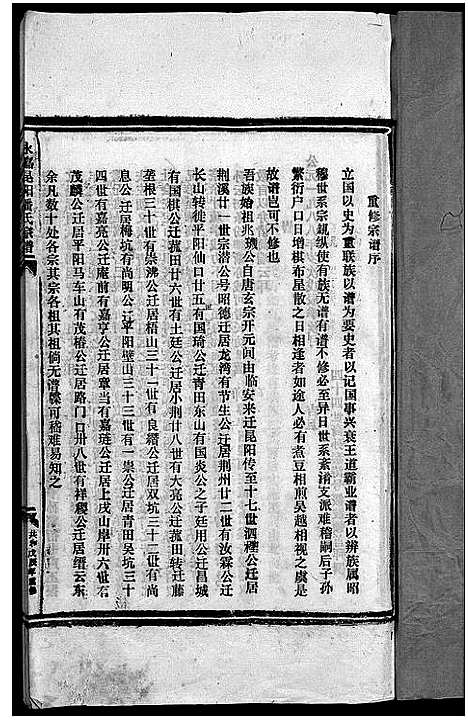 重修宗谱序
立国以史为重联族以谱为要史者以记国事兴衰王道霸业谱者以辨族属昭
穆世系宗规纵使有族无谱有谱不修必至异日世系紊淆支派难稽嗣后子孙
繁衍户口日增棋布星散之日相逢者如途人必有煮豆相煎吴越相视之虞是
故谱岂可不修也
吾族始祖兆璣公自唐玄宗开元间由临安来迁昆阳传至十七世泗檉公迁居
荆溪廿一世宗潜公号昭德迁居龙湾有节生公迁居荆州廿二世有汝霖公迁
长山转徙平阳仙口廿五有国琦公迁青田东山有国炎公之子廷用公迁昌城
有国棋公迁菰田廿六世有土廷公迁居小荆廿八世有大亮公迁菰田转迁藤
垄根三十世有崇沸公迁居梧山三十一世有良缙公迁居双坑三十二世有尚
息公迁居梅坑有尚明公迁平阳壁山三十三世有一崇公迁居青田吴坑三十
四世有嘉亮公迁庵前有嘉亨公迁居章当有嘉琏公迁居上戌山岸卅六世有
茂麟公迁居平阳马车山有茂椿公迁居路门口卅八世有祥稷公迁居缙云东
余凡数十处各宗其宗各祖其祖倘无谱牒可稽难易知之
永嘉昆阳潘氏宗谱
共和戊辰年重修